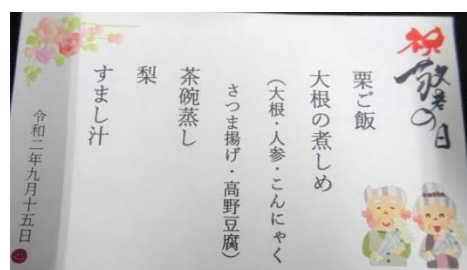 祝
敬老の日
栗ご飯
大根の煮しめ
（大根・人参・こんにゃく
さつま揚げ・高野豆腐）
茶碗蒸し
梨
すまし汁
令和二年九月十五日